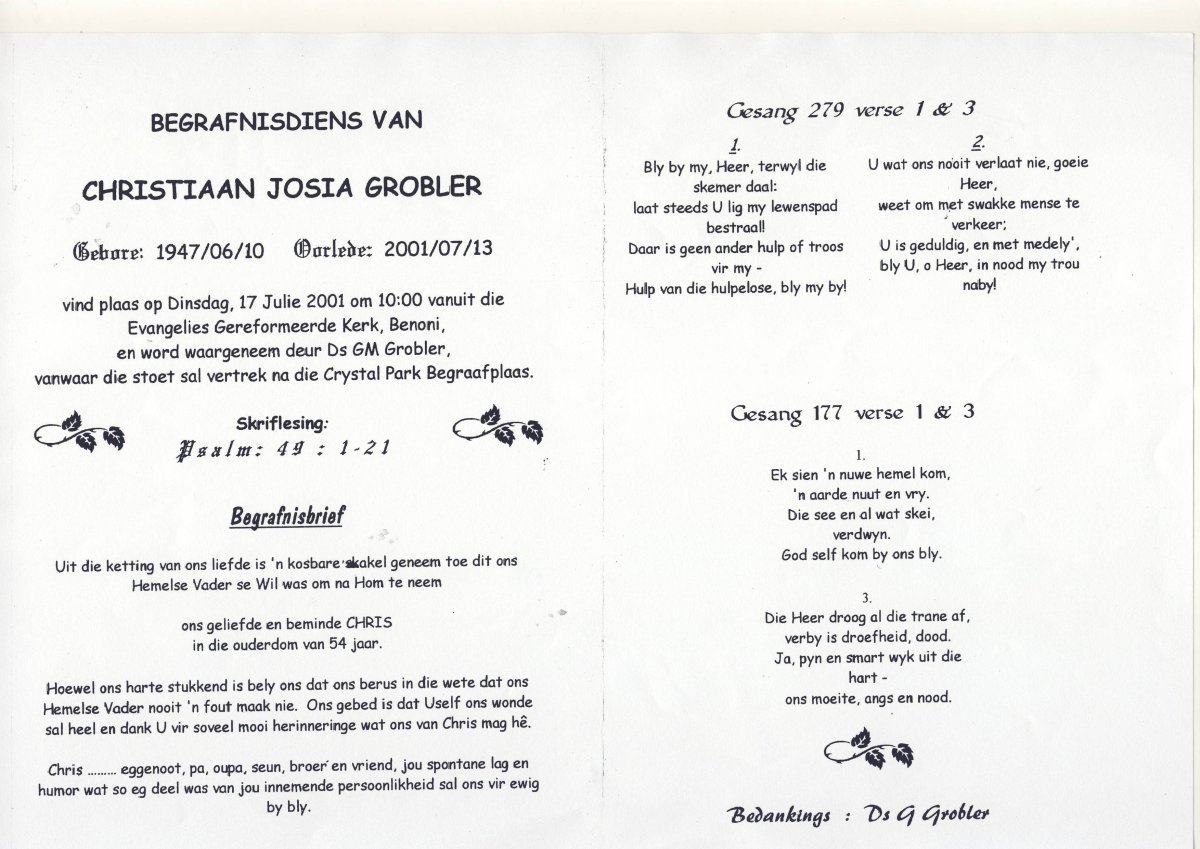 BEGRAFNISDIENS VAN
CHRISTIAAN JOSIA GROBLER
Gebore: 1947/06/10 Oorlede: 2001/07/13
vind plaas op Dinsdag, 17 Julie 2001 om 10:00 vanuit die
Evangelies Gereformeerde Kerk, Benoni,
en word waargeneem deur Ds GM Grobler,
vanwaar die stoet sal vertrek na die Crystal Park Begraafplaas.
Skriflesing:
Psalm: 49 : 1-21
Begrafnisbrief
Uit die ketting van ons liefde is 'n kosbare skakel geneem toe dit ons
Hemelse Vader se Wil was om na Hom te neem
ons geliefde en beminde CHRIS
in die ouderdom van 54 jaar.
Hoewel ons harte stukkend is bely ons dat ons berus in die wete dat ons
Hemelse Vader nooit 'n fout maak nie. Ons gebed is dat Uself ons wonde
sal heel en dank U vir soveel mooi herinneringe wat ons van Chris mag hê.
Chris ......... eggenoot, pa, oupa, seun, broer en vriend, jou spontane lag en
humor wat so eg deel was van jou innemende persoonlikheid sal ons vir ewig
by bly.
Gesang 279 verse 1 & 3
1.
Bly by my, Heer, terwyl die
skemer daal:
laat steeds U lig my lewenspad
bestraal!
Daar is geen ander hulp of troos
vir my -
Hulp van die hulpelose, bly my by!
2.
U wat ons nooit verlaat nie, goeie
Heer,
weet om met swakke mense te
verkeer;
U is geduldig, en met medely',
bly U, o Heer, in nood my trou
naby!
Gesang 177 verse 1 & 3
1.
Ek sien 'n nuwe hemel kom,
'n aarde nuut en vry.
Die see en al wat skei,
verdwyn.
God self kom by ons bly.
3.
Die Heer droog al die trane af,
verby is droefheid, dood.
Ja, pyn en smart wyk uit die
hart -
ons moeite, angs en nood.
Bedankings : Ds G Grobler